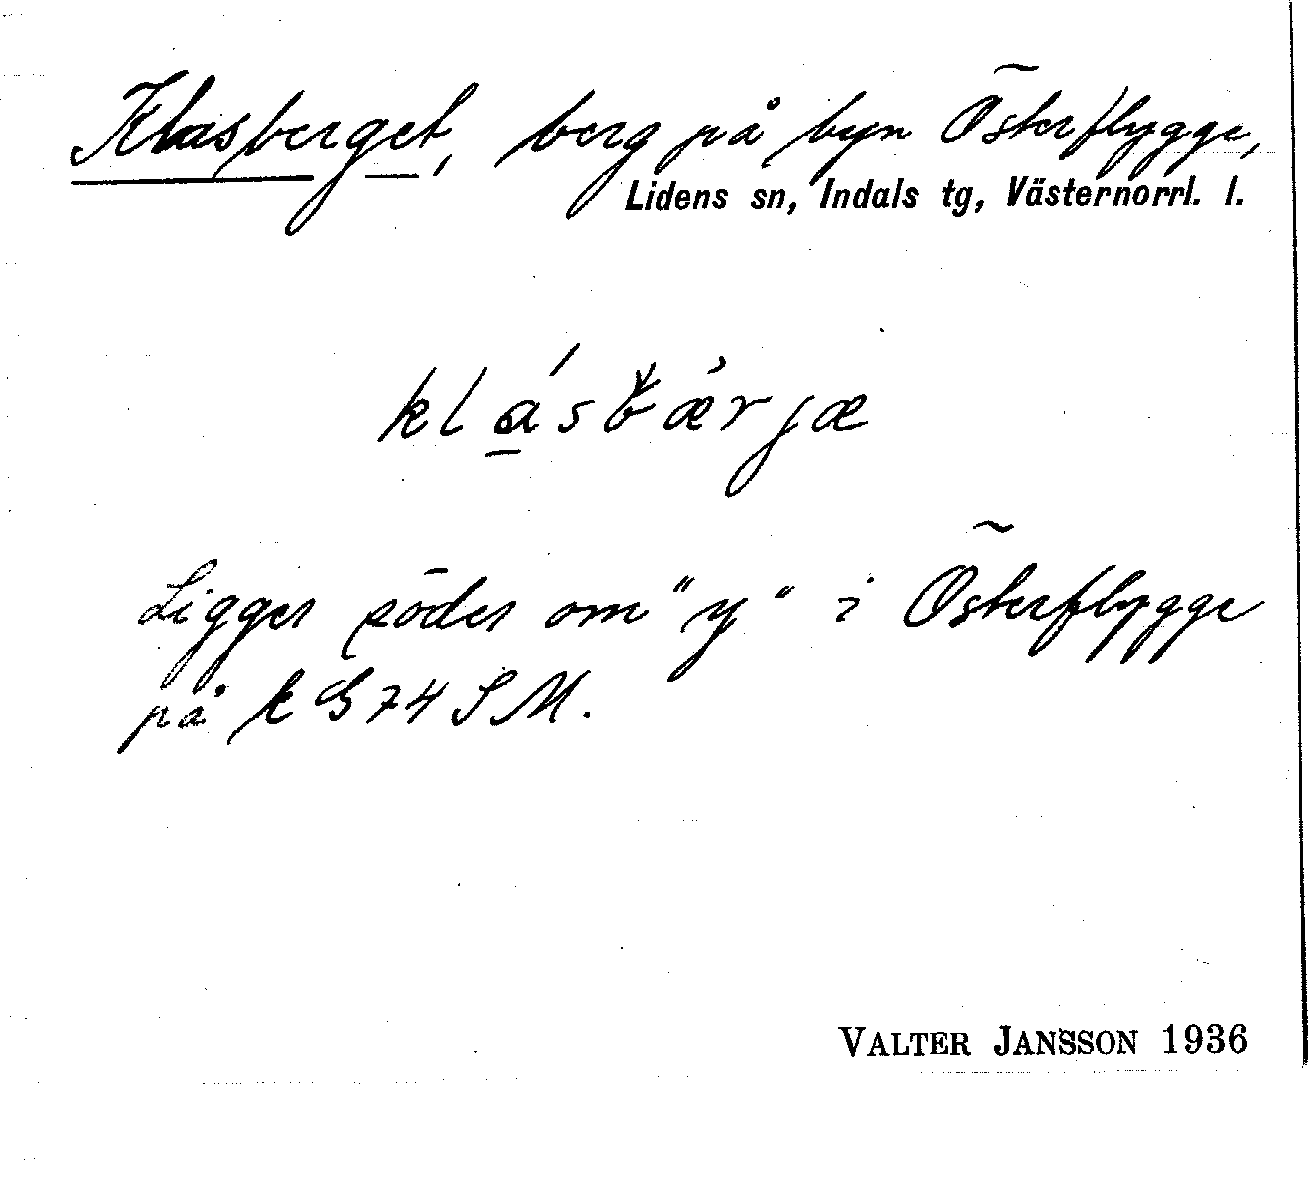 Klasberget, berg på byn Österflygge,
Lidens sn, Indals tg, Västernorrl. l.
Ligger söder om "y" i Österflygge
på k G 74 S M.
VALTER JANSSON 1936